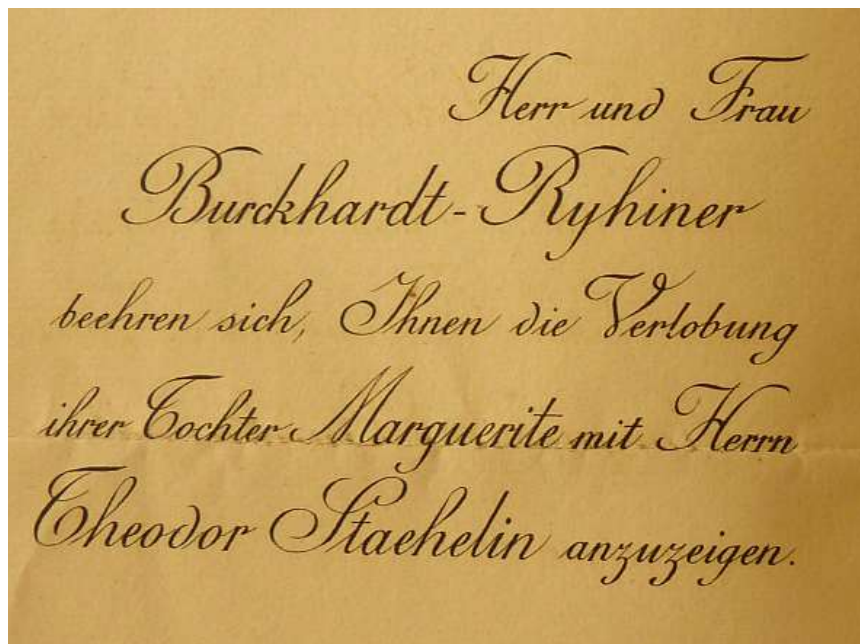 Herr und Frau
Burckhardt-Ryhiner
beehren sich, Ihnen die Verlobung
ihrer Tochter Marguerite mit Herrn
Theodor Staehelin anzuzeigen.